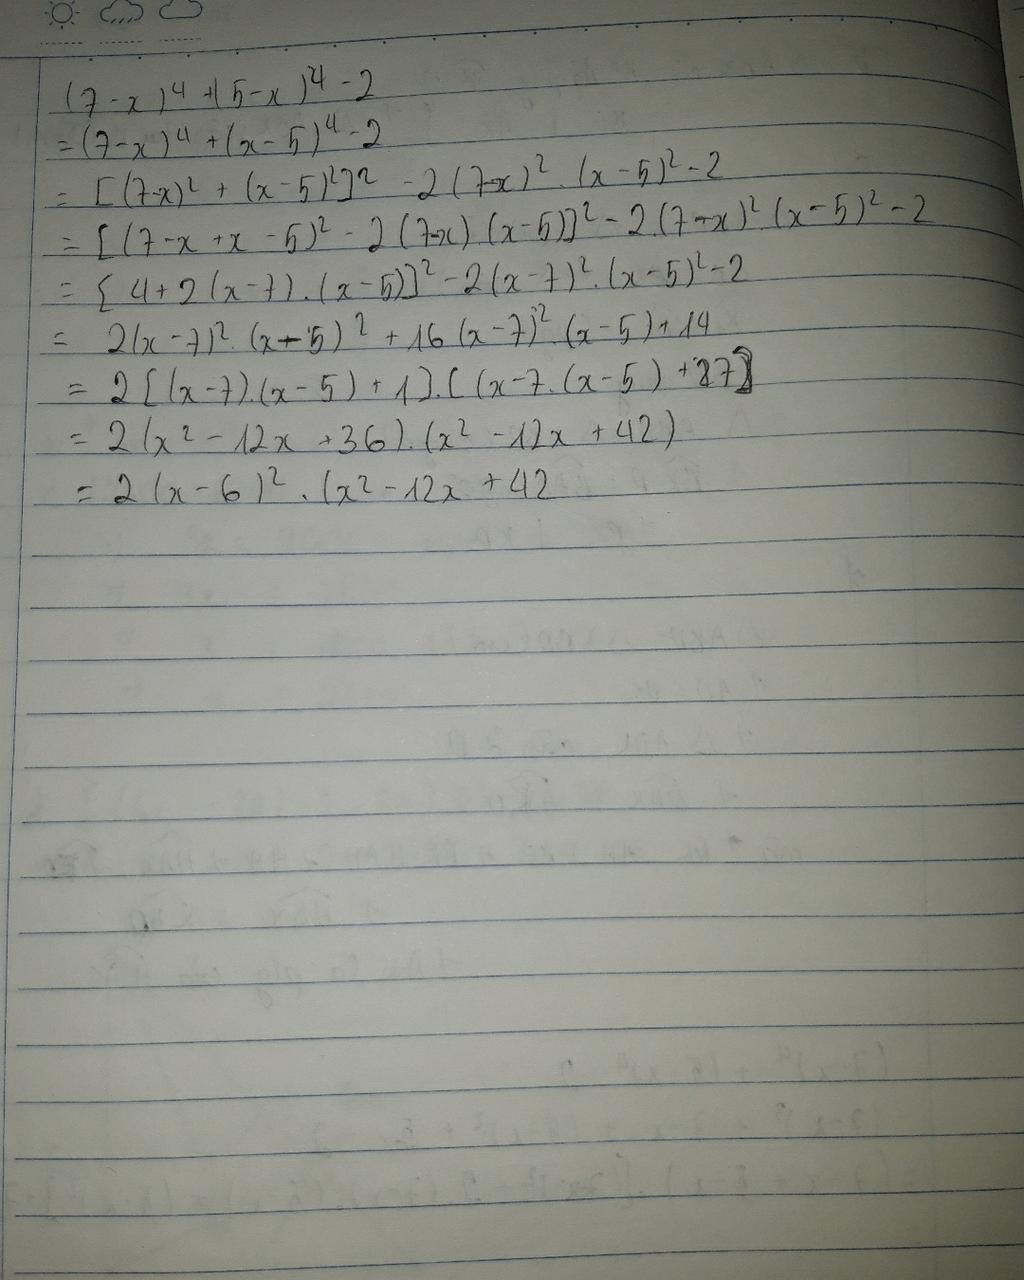 (7-x)⁴+(5-x)⁴-2
=(7-x)⁴+(x-5)⁴-2
= [(7-x)² + (x-5)²]² - 2(7-x)².(x-5)²-2
= [(7-x+x-5)² - 2(7-x).(x-5)]² - 2.(7-x)².(x-5)²-2
= [4+2(x-7).(x-5)]² - 2(x-7)².(x-5)²-2
= 2(x-7)².(x-5)² + 16(x-7)².(x-5)+14
= 2[(x-7).(x-5)+1].[(x-7.(x-5)+7]
= 2(x²-12x+36).(x²-12x+42)
= 2(x-6)².(x²-12x+42